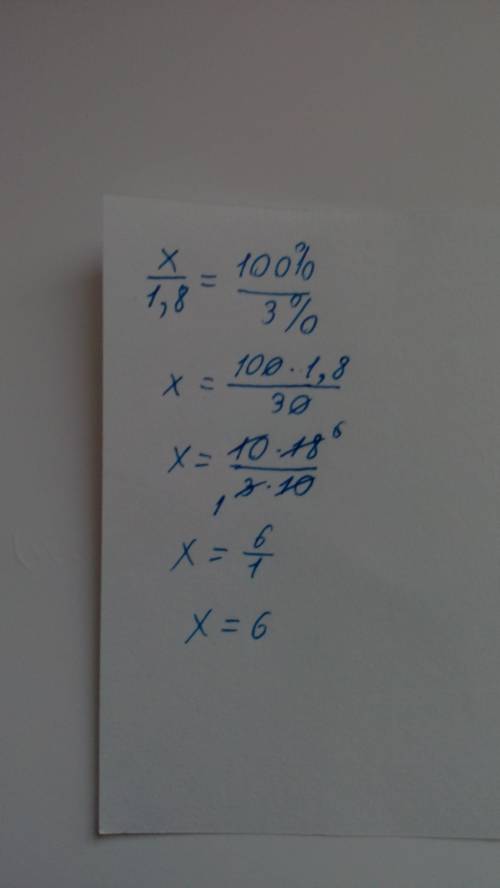 x/1,8 = 100%/3%
x = 100·1,8/30
x = 10·18 6/1 3·10
x = 6/1
x = 6